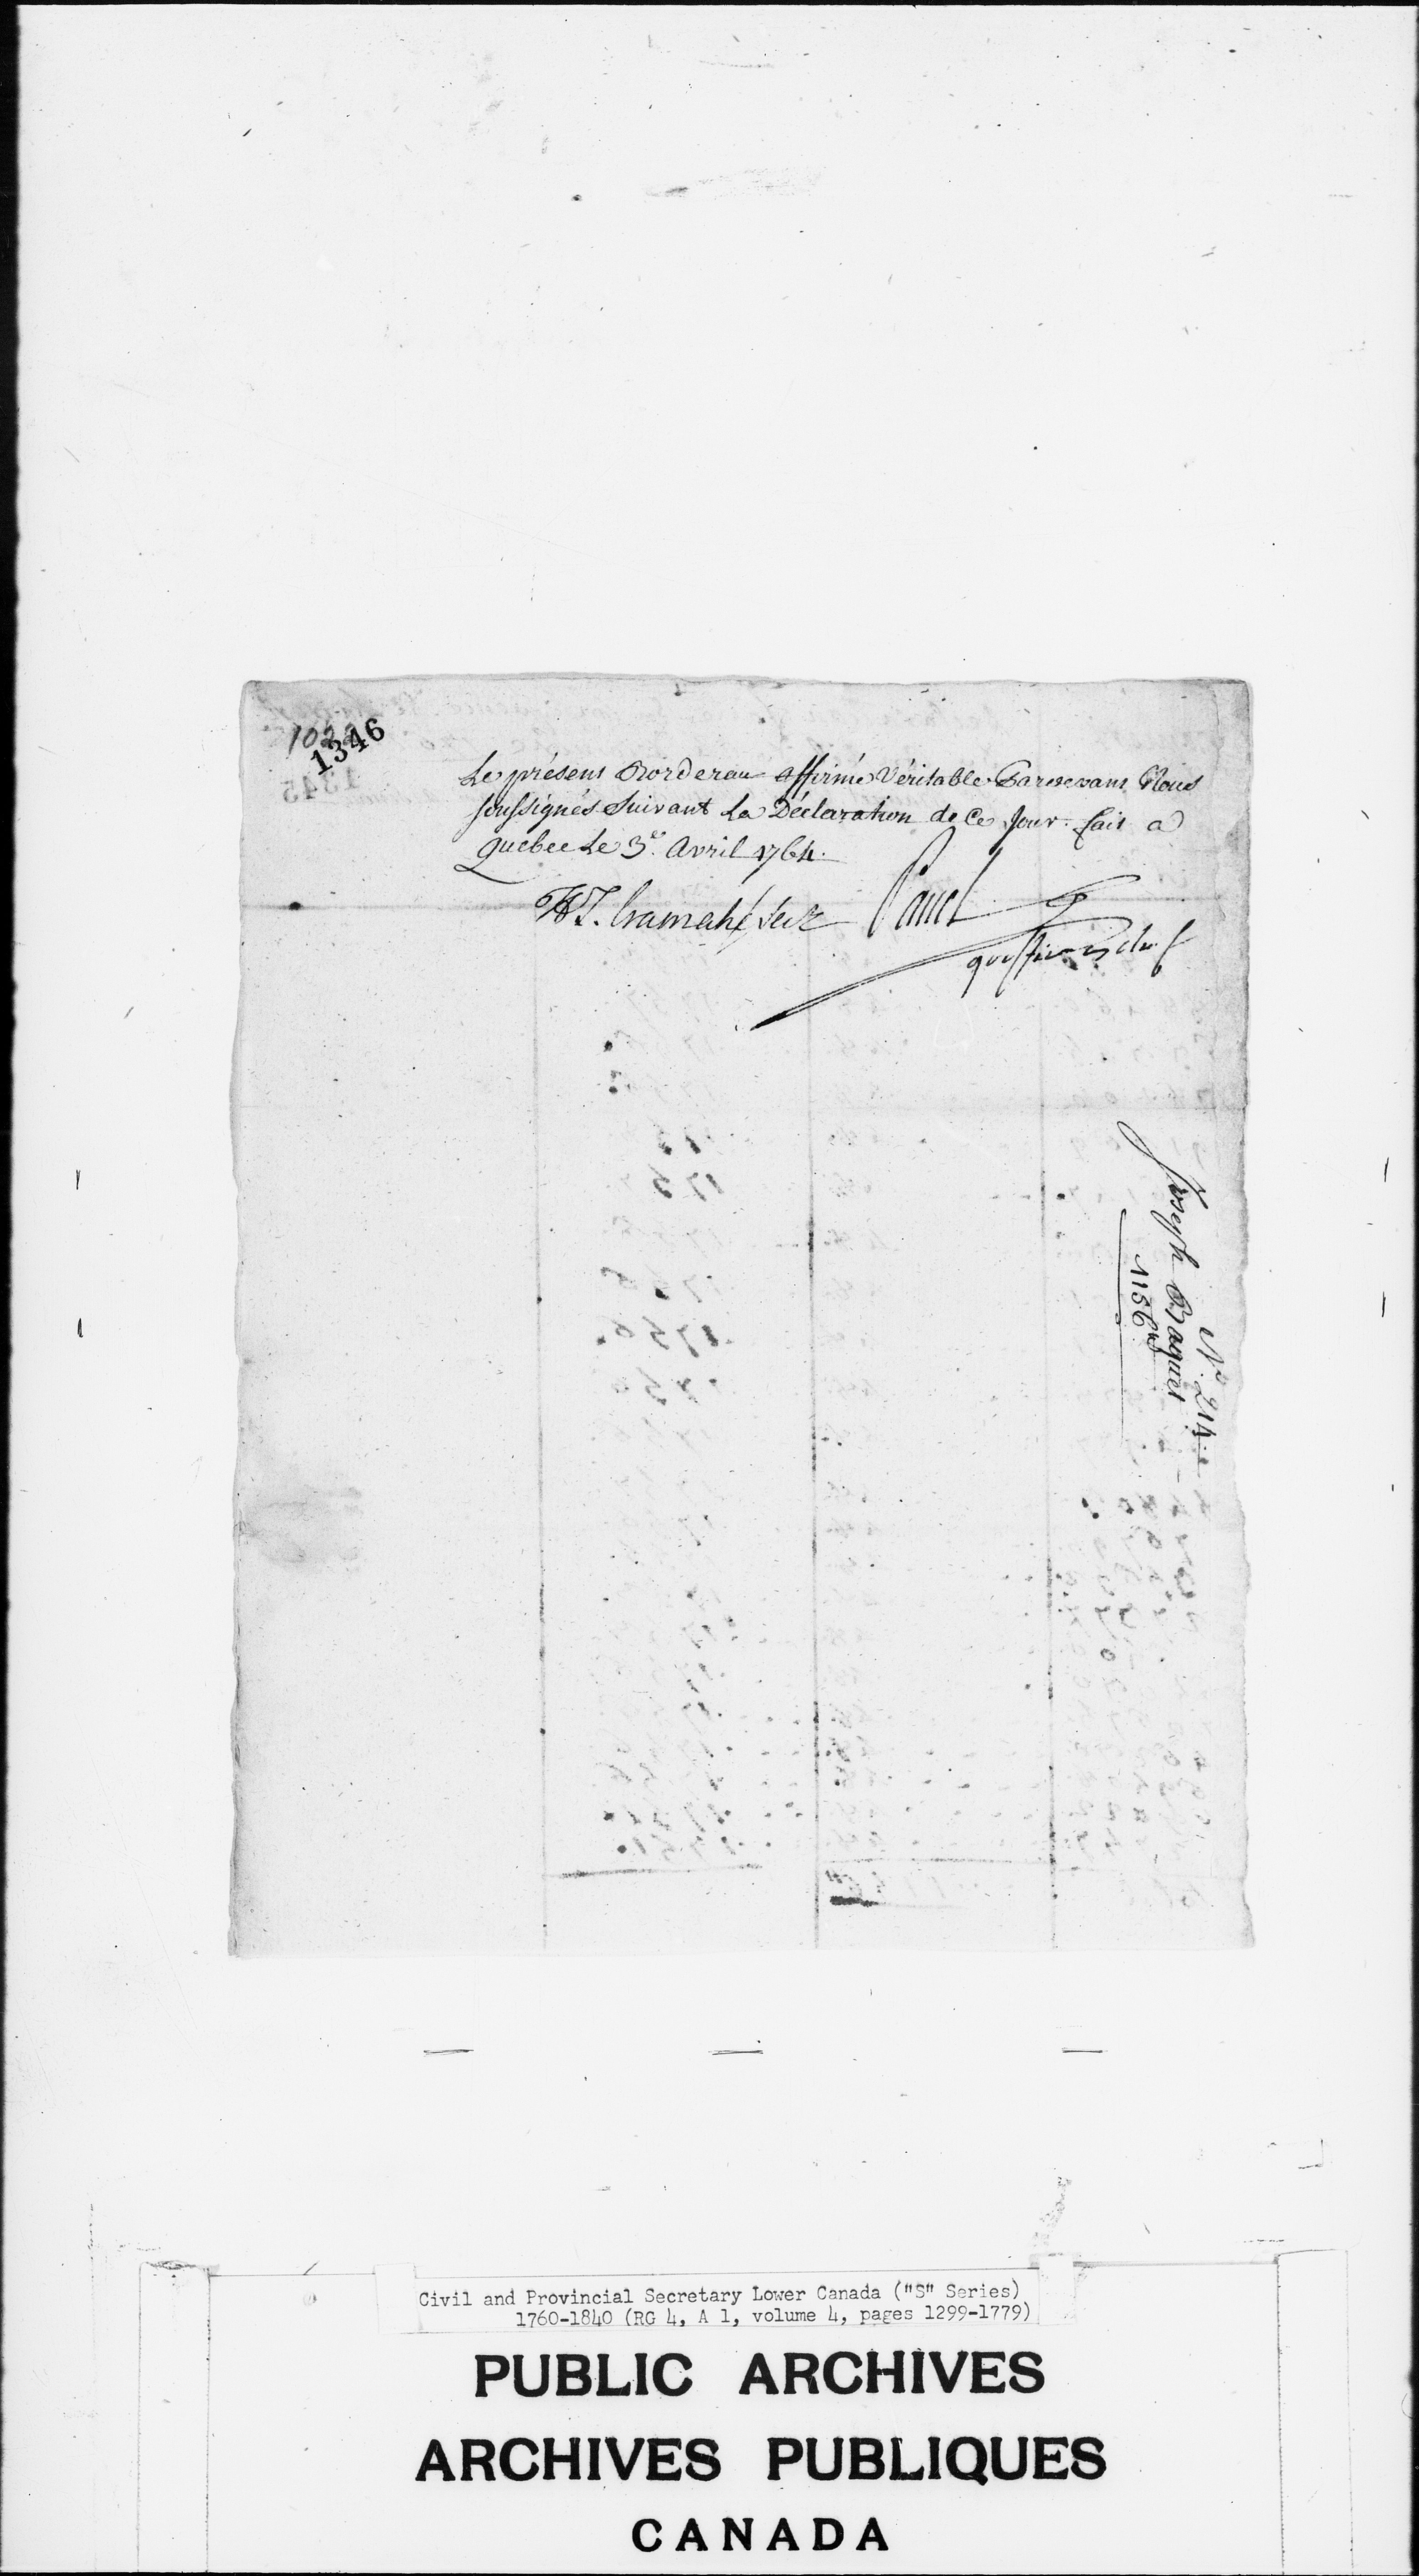 1022
1346
Le présent Bordereau affirmé Véritable Pardevant Nous
soussignés Suivant La Déclaration de Ce Jour. fait a
Quebec Le 3e. Avril 1764.
H.T. Cramahé Secr
Panet
greffier en chef
No. 214
Joseph Baquet
1156
1345
Civil and Provincial Secretary Lower Canada ("S" Series)
1760-1840 (RG 4, A 1, volume 4, pages 1299-1779)
PUBLIC ARCHIVES
ARCHIVES PUBLIQUES
CANADA